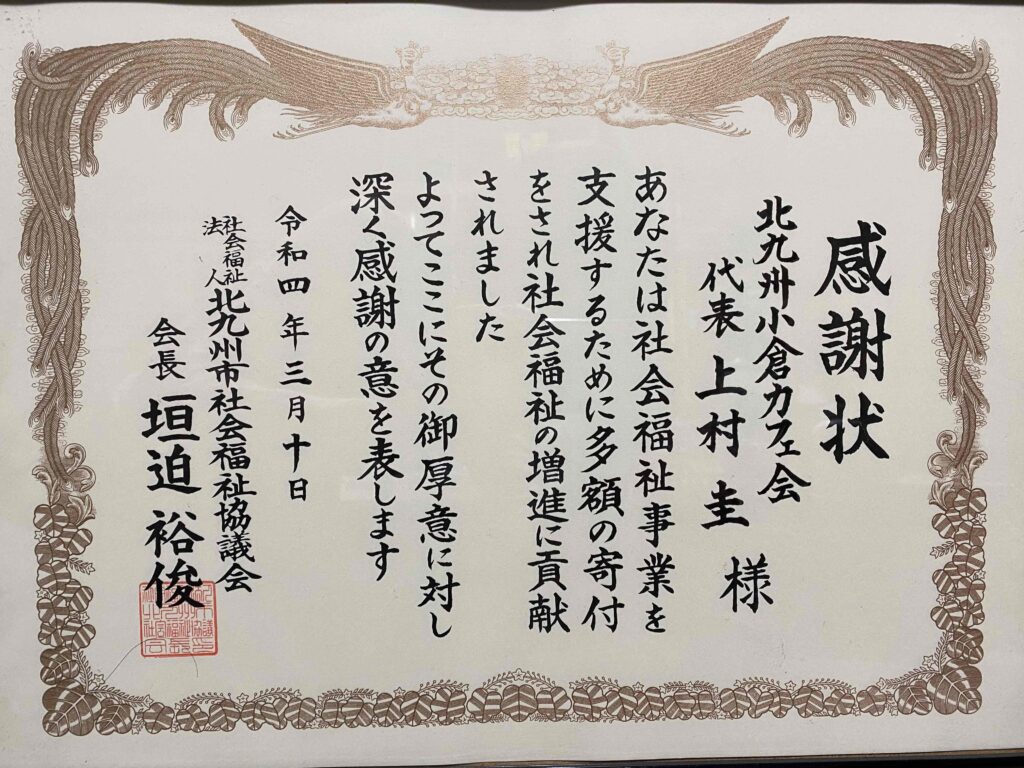 感謝状
北九州小倉カフェ会
代表 上村 圭 様
あなたは社会福祉事業を
支援するために多額の寄付
をされ社会福祉の増進に貢献
されました
よってここにその御厚意に対し
深く感謝の意を表します
令和四年三月十日
社会福祉法人 北九州市社会福祉協議会
会長 垣迫 裕俊